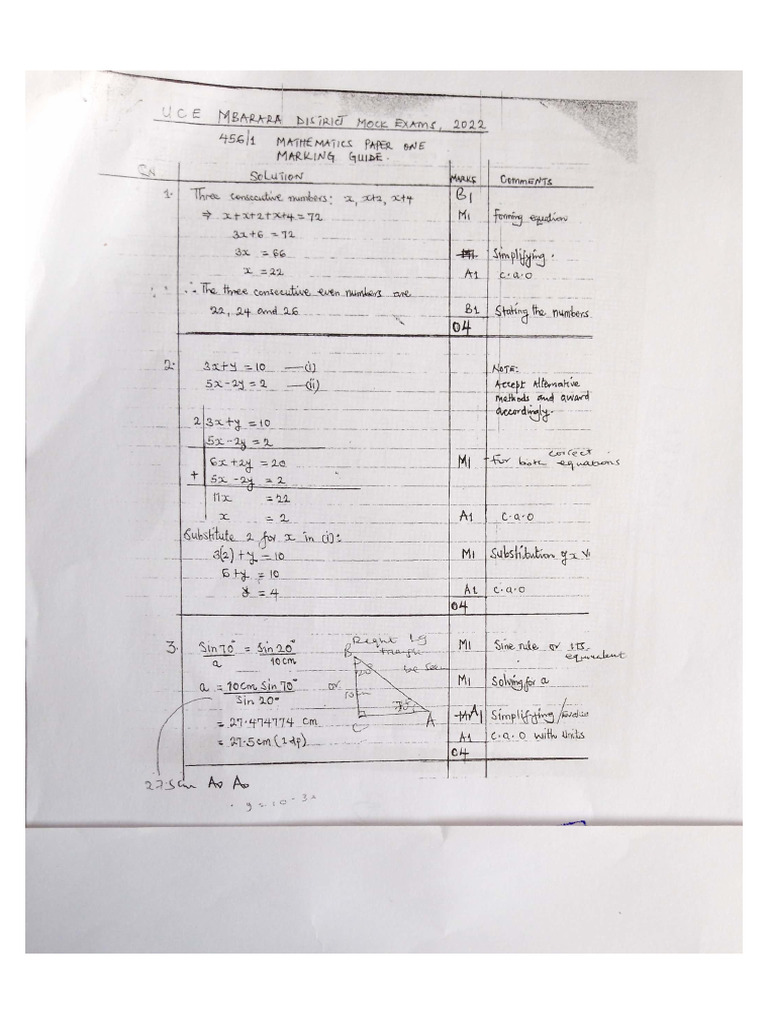 UCE MBARARA DISTRICT MOCK EXAMS, 2022
456/1 MATHEMATICS PAPER ONE
MARKING GUIDE.
SOLUTION MARKS COMMENTS
1. Three consecutive numbers: x, x+2, x+4 B1
⇒ x+x+2+x+4=72 M1 Forming equation
3x+6 = 72
3x = 66 Simplifying.
x = 22 A1 c.a.o
∴ The three consecutive even numbers are
22, 24 and 26 B1 Stating the numbers
04
2. 3x+y =10 —(i) NOTE:
5x-2y = 2 —(ii) Accept Alternative
methods and award
accordingly.
2 3x+y =10
5x-2y = 2
6x+2y = 20 M1 For both correct equations
+ 5x-2y = 2
11x = 22
x = 2 A1 c.a.o
Substitute 2 for x in (i):
3(2)+y =10 M1 Substitution of x
6+y = 10
y = 4 A1 c.a.o
04
3. Sin70° = Sin20° Right
a 10cm triangle
M1 Sine rule or its
equivalent
B
20°
be seen
a = 10cm Sin70° or 10cm M1 Solving for a
Sin 20°
70°
= 27.474774 cm C A A1 Simplifying
= 27.5cm (1dp) A1 c.a.o with units
04
27.5cm A0 A0
y = 10-3x